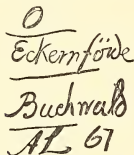 O
Eckernföide
Buchwald
AL 61